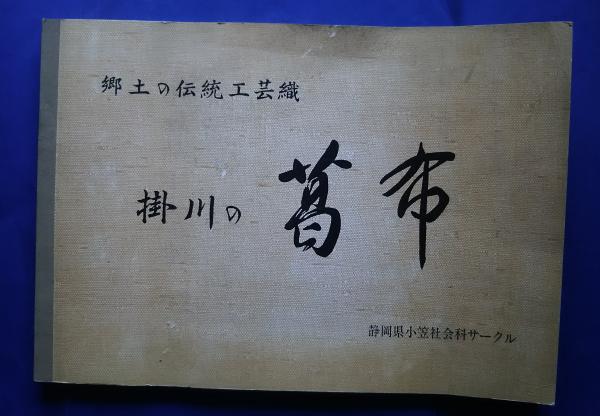 郷土の伝統工芸織
掛川の 葛布
静岡県小笠社会科サークル